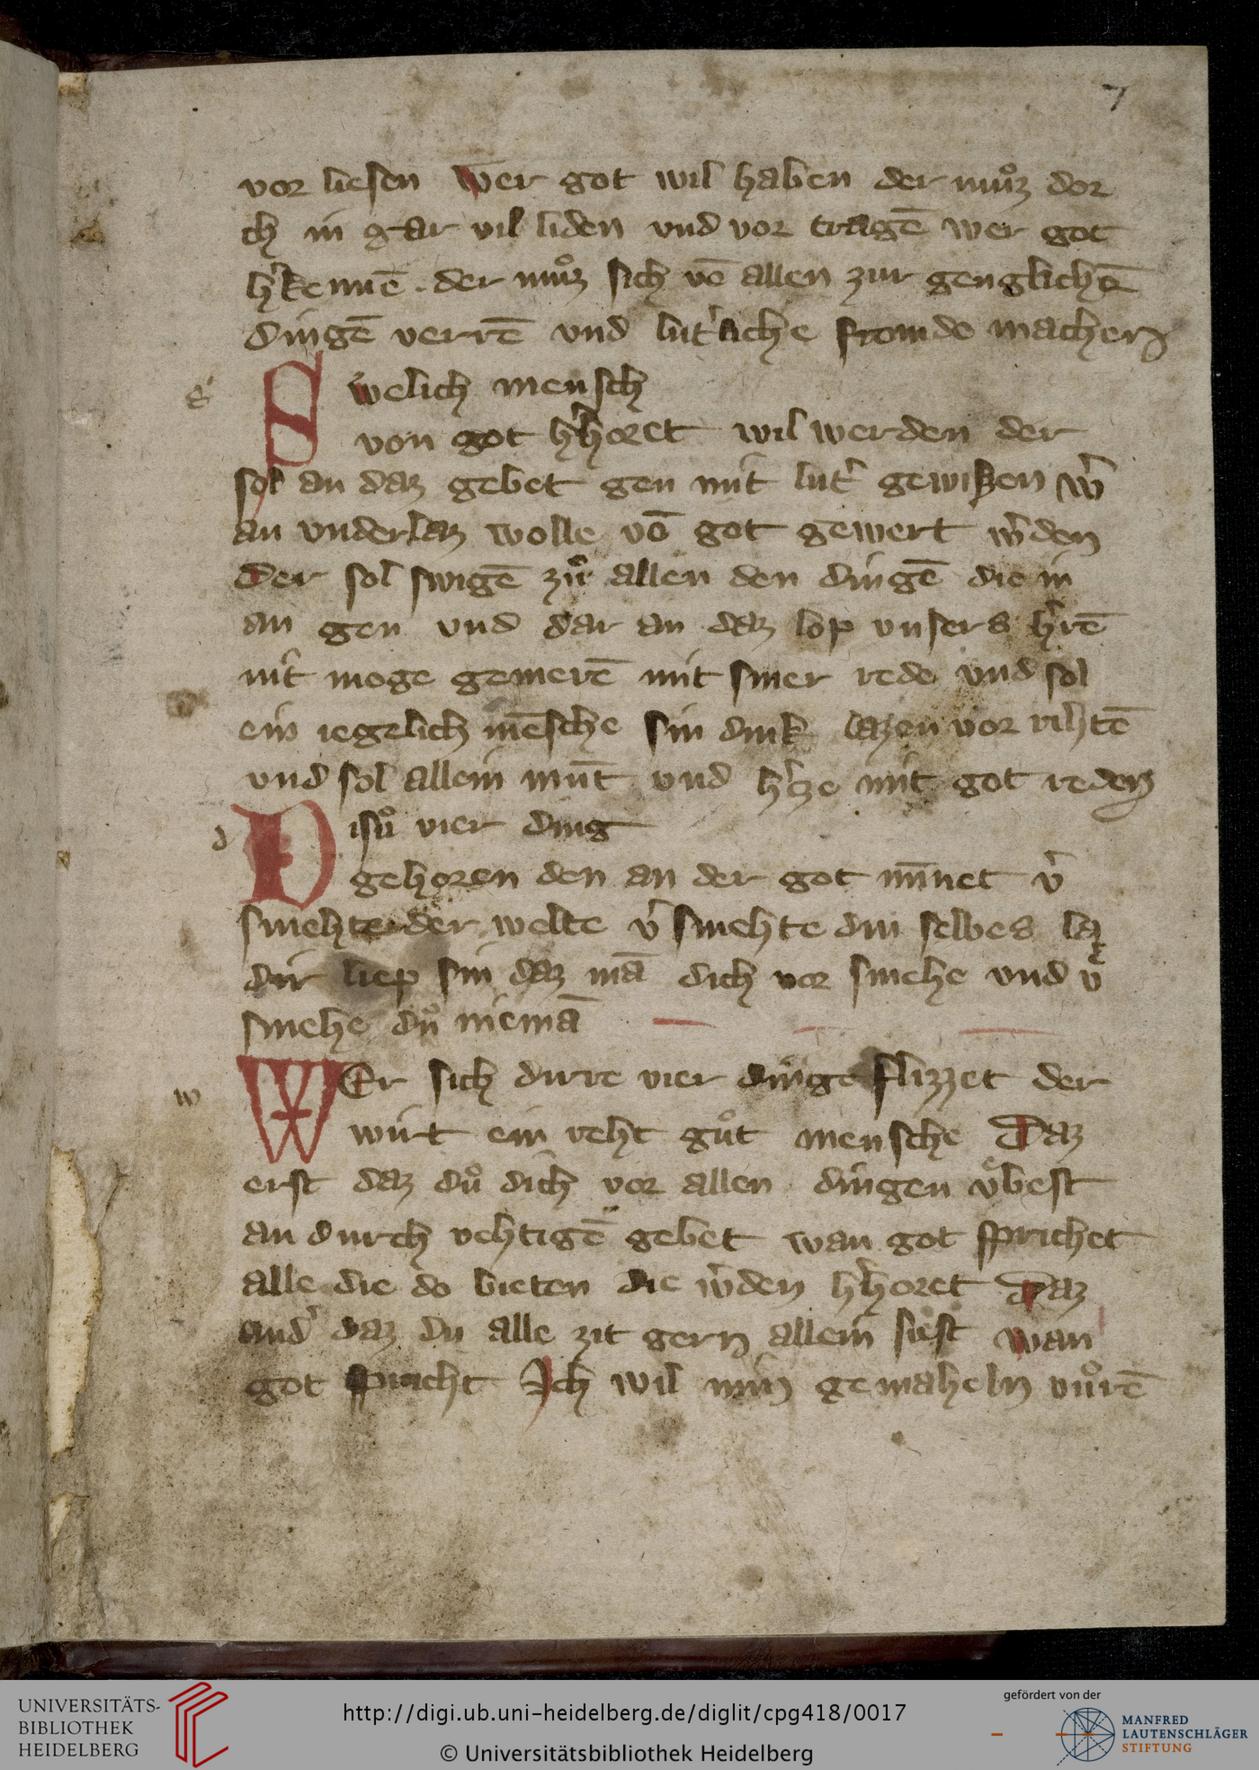 7
vor liesen Wer got wil haben der muͦz dor
ch in gar vil liden vnd vor tragē wer got
hˀkennē der muͦz sich vō allen zur genglichē
dingē verrē vnd lutˀliche fromde machen
s
Swelich mensch
von got hˀhoret wil werden der
sol an daz gebet gen mit lutˀ gewissen wˀ
an vnderlaz wolle vō got gewert wˀden
Der sol swigē zuͦ allen den dingē die in
an gen vnd dar an daz lop vnsers hˀrē
nit moge gemerē mit siner rede vnd sol
ein iegelich mēsche sin dink lazen vor rihtē
vnd sol allein mūt vnd hˀze mit got reden
d
Disuͦ vier ding
gehoren den an der got mīnet vˀ
smehte der welte vˀsmehte din selbes la
dir liep sin daz mā dich vor smehe vnd vˀ
smehe duͦ niemā
w
WEr sich dirre vier dinge flizzet der
wirt ein reht guͦt mensche Daz
erst daz duͦ dich vor allen dingen vͤbest
an durch nehtigē gebet wan got sprichet
alle die do bieten die wˀden hˀhoret Daz
andˀ daz du alle zit gern allein siest wan
got spricht Ich wil min gemaheln vuͦrē
UNIVERSITÄTS-
BIBLIOTHEK
HEIDELBERG
http://digi.ub.uni-heidelberg.de/diglit/cpg418/0017
© Universitätsbibliothek Heidelberg
gefördert von der
MANFRED
LAUTENSCHLÄGER
STIFTUNG